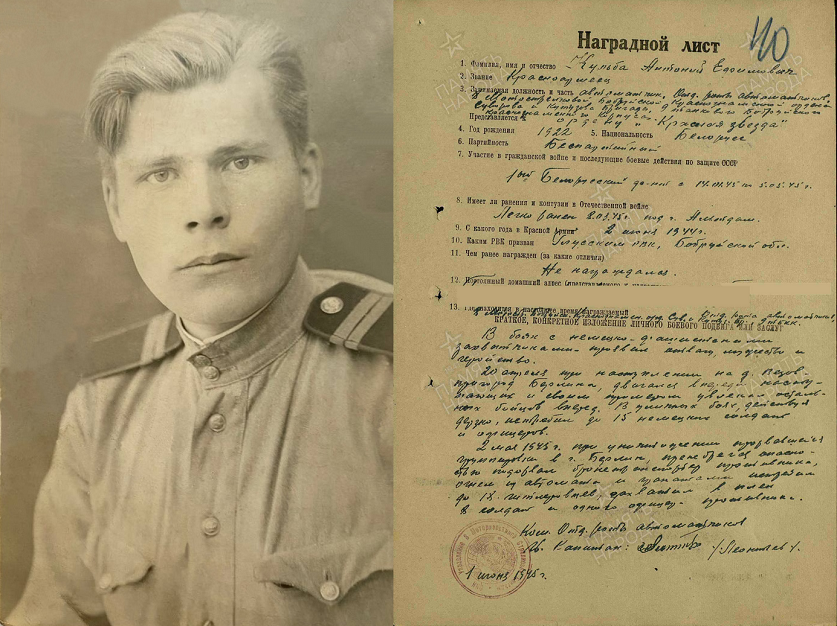 110
Наградной лист
1. Фамилия, имя и отчество Кульба Антоний Ефимович
2. Звание Красноармеец
3. Занимаемая должность и часть автоматчик, Отд. роты автоматчиков
Суворова и Кутузова бригады,
Представляется к ордену "Красная звезда"
4. Год рождения 1922 5. Национальность Белорус
6. Партийность Беспартийный
7. Участие в гражданской войне и последующие боевые действия по защите СССР
1ый Белорусский с 14.01.45 по 5.05.45г.
8. Имеет ли ранения и контузии в Отечественной войне
Легко ранен под г.
9. С какого года в Красной Армии 2 июня 1944г.
10. Каким РВК призван Глусским рвк, Бобруйской обл.
11. Чем ранее награжден (за какие отличия)
Не награждался.
12. Постоянный домашний адрес
13.
КРАТКОЕ, КОНКРЕТНОЕ ИЗЛОЖЕНИЕ ЛИЧНОГО БОЕВОГО ПОДВИГА ИЛИ ЗАСЛУГ
В боях с немецко-фашистскими
захватчиками проявил отвагу, мужество и
геройство.
20 апреля при наступлении на д.
пригород Берлина, двигался впереди наступ-
ающих и своим примером увлекал осталь-
ных бойцов вперед. В боях, действуя
дерзко, истребил до 15 немецких солдат
и офицеров.
2 мая 1945г. при уничтожении прорвавшейся
группировки в г. Берлин, пренебрегая опасно-
стью подорвал бронетранспортер противника,
огнем из автомата и гранатами истребил
до 18 гитлеровцев, в плен
8 солдат и одного офицера противника.
Ком. Отд. роты автоматчиков
Гв. Капитан: /Леонтьев/.
1 июня 1945г.